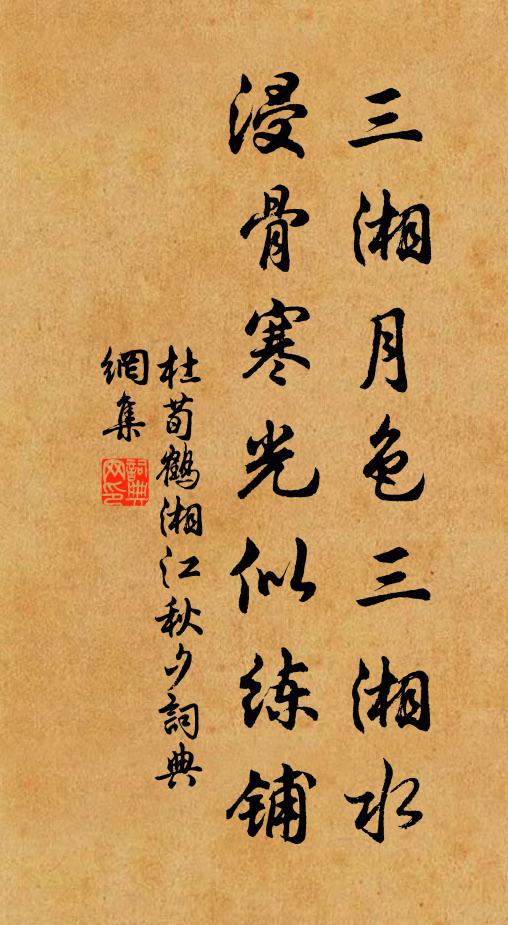 三湘月色三湘水
浸骨寒光似练铺
杜荀鶴湘江秋夕詞典
網集
詞典网印